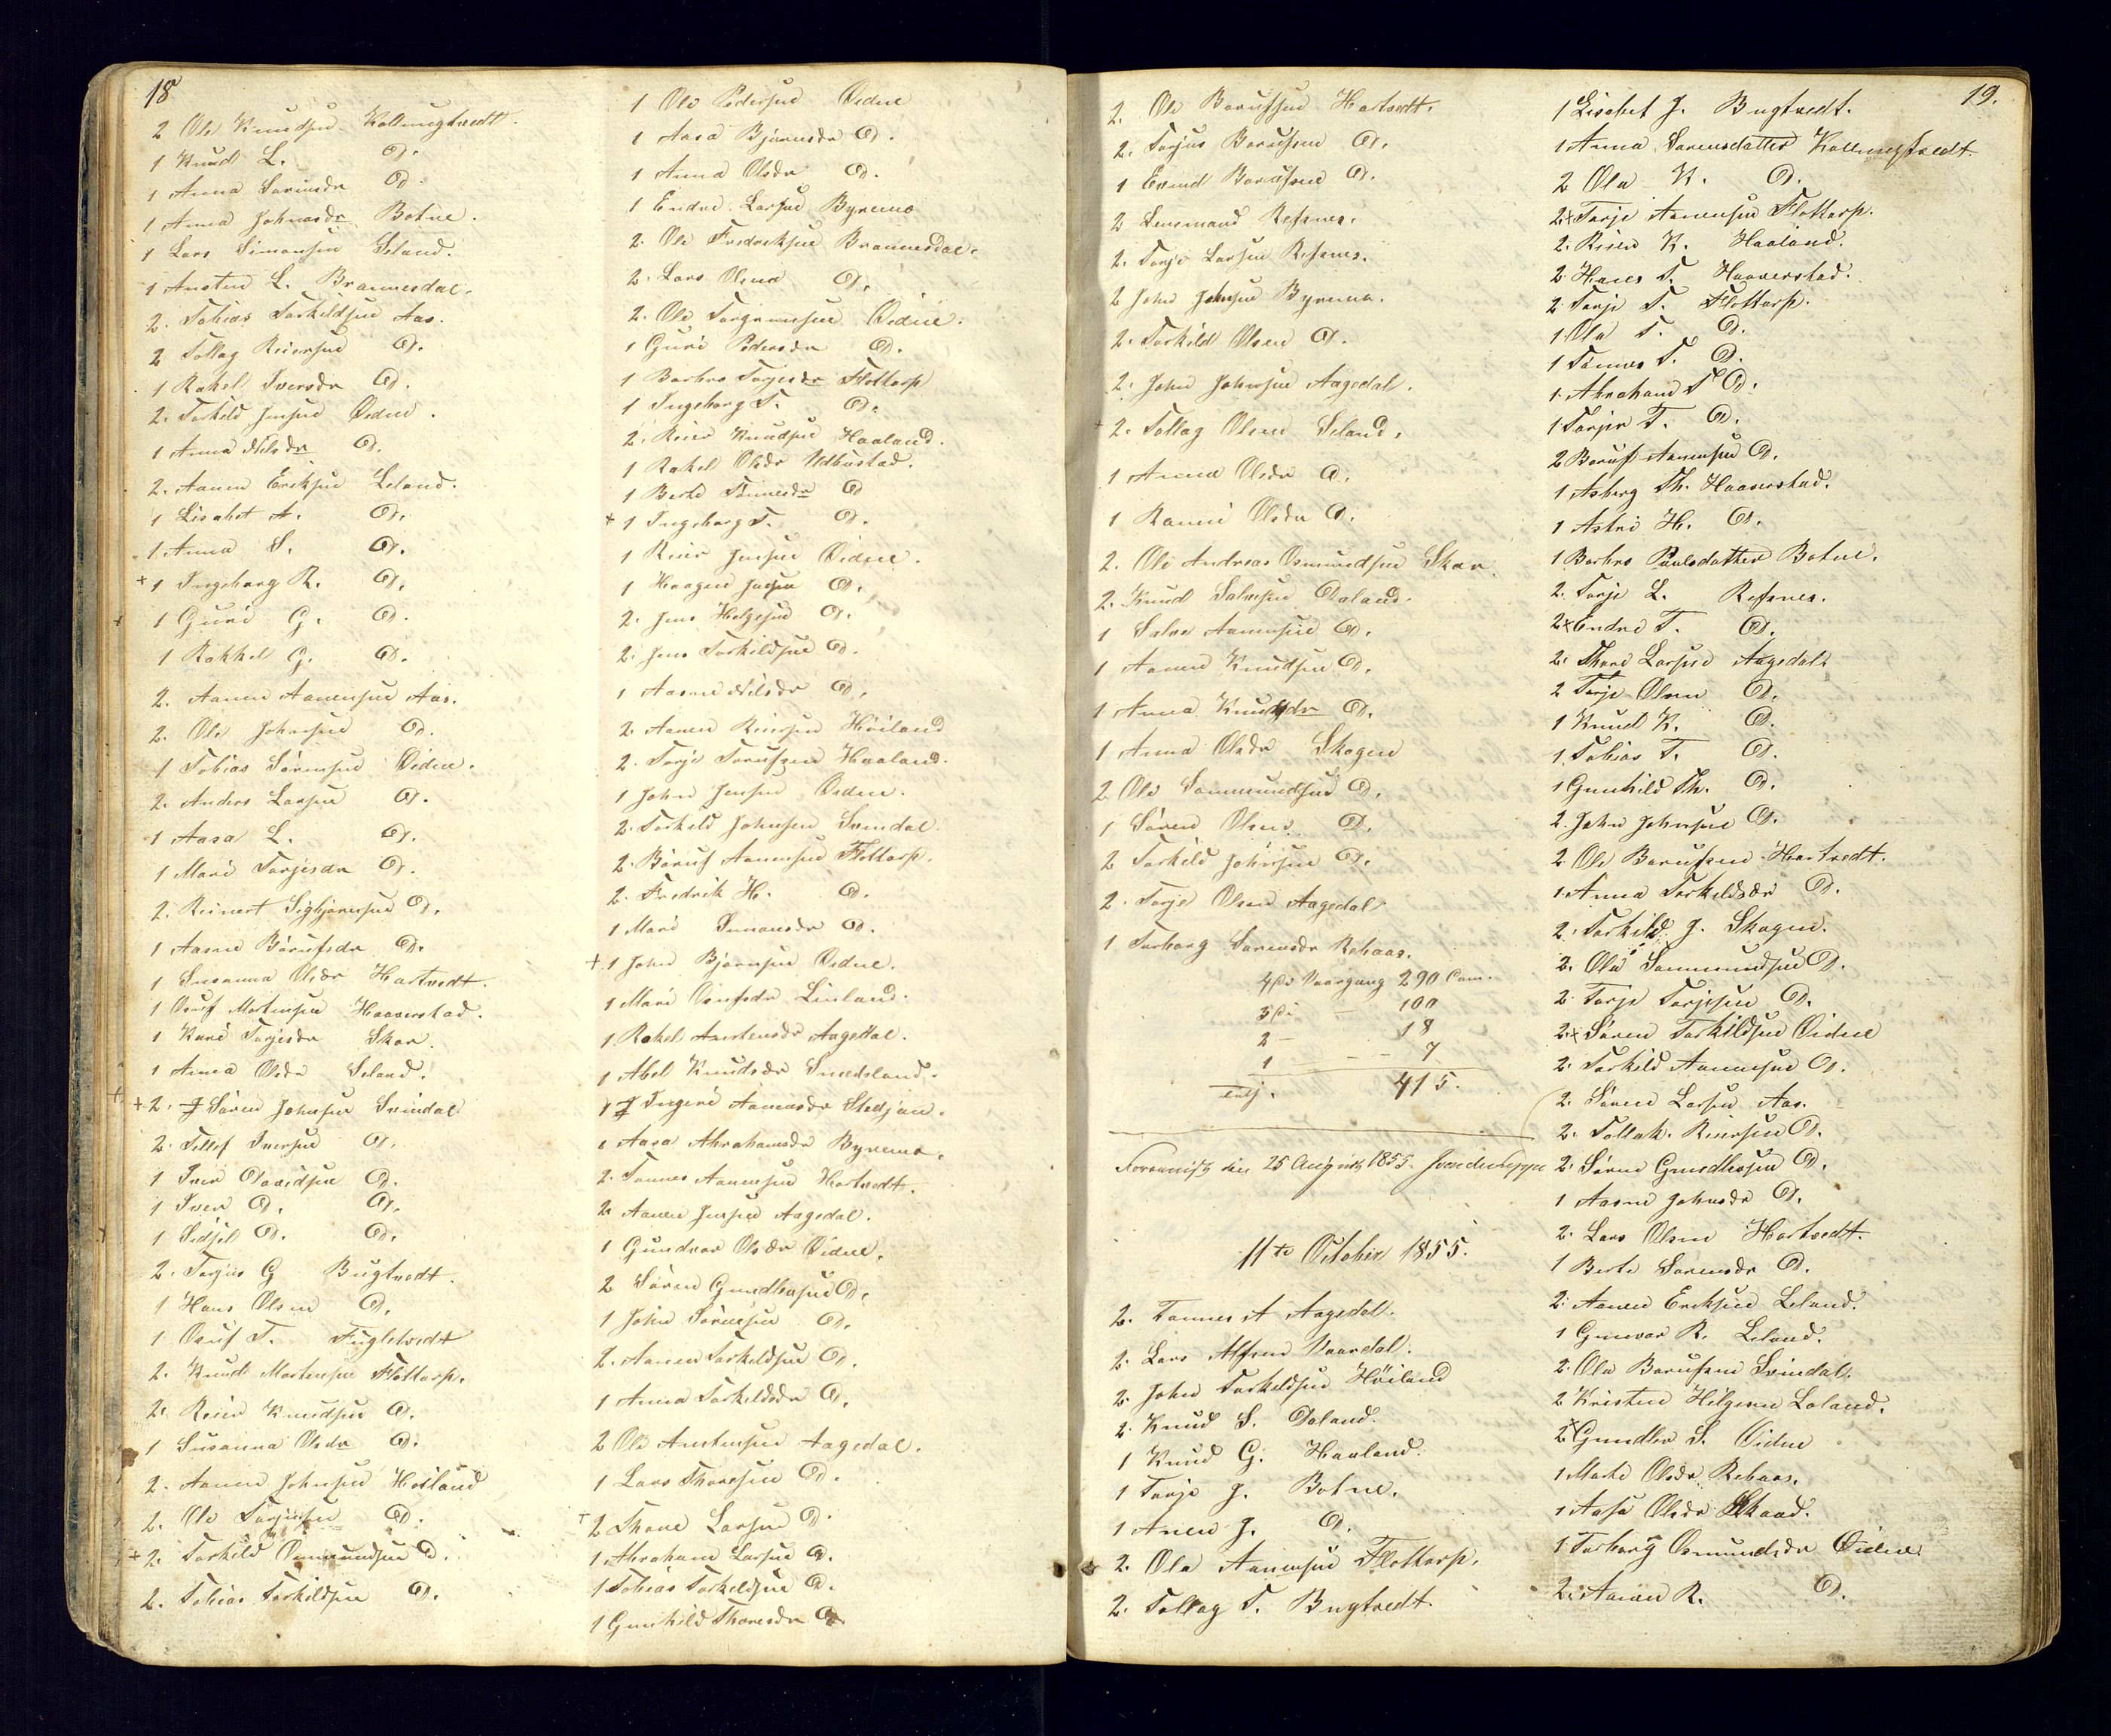 18
2 Ole Knudsen Kollungtvedt.
1 Knud L. D.
1 Anna Sørensdr D.
1 Anna Johnsdr Botne.
1 Lars Simonsen Seland.
1 Austen L. Brannesdal.
2. Tobias Torkildsen Aas.
2 Tollag Reiersen D.
1 Rakel Iversdr D.
2. Torkild Jensen Øidne.
1 Anna Nilsdr D.
2. Aanen Eriksen Leland.
1 Lisabet A. D.
1 Anna S. D.
+ 1 Ingeborg R. D.
+ 1 Guri G. D.
1 Rakkel G. D.
2. Aanen Aanensen Aas.
2. Ole Johnsen D.
1 Tobias Sørensen Øidne.
2. Anders Larsen D.
1 Aasa L. D.
1 Mari Torjesdr D.
2. Reinert Sigbjørnsen D.
1 Aasne Børufsdr D.
1 Susanna Olsdr Hartvedt.
1 Osuf Mortensen Haaverstad.
1 Kari Torjesdr Skar.
1 Anna Olsdr Seland.
+ 2. Søren Johnsen Svindal
2. Tellef Iversen D.
1 Iver Davidsen D.
1 Iver D. D.
1 Sidsel D. D.
2. Torjus G Bugtvedt.
1 Hans Olsen D.
1 Osuf T. Fugletvedt
2. Knud Mortensen Flottorp.
2. Reier Knudsen D.
1 Susanna Olsdr D.
2. Aanen Johnsen Høiland
2. Ole Torjussen D.
+ 2. Torkild Osmundsen D.
2. Tobias Torkildsen D.
1 Ole Pedersen Øidne
1 Aasa Bjørnsdr D.
1 Anna Olsdr D.
1 Endre Larsen Byremo
2. Ole Fredriksen Brannesdal.
2. Lars Olsen D.
2. Ole Torgrimsen Øidne.
1 Guri Pedersdr D.
1 Barbro Torjesdr Flottorp
1 Ingeborg T. D.
2. Reier Knudsen Haaland.
1 Rakel Olsdr Udbustad.
1 Berte Tønnesdr D
+ 1 Ingeborg T. D.
1 Reier Jensen Øidne.
1 Haagen Jensen D.
2. Jens Helgesen D.
2. Jens Torkildsen D.
1 Aasne Nilsdr D.
2. Aanen Reiersen Høiland
2. Torje Torufsen Haaland.
1 John Jensen Øidne.
2. Torkild Johnsen Svindal.
2. Børuf Aanensen Flottorp.
2. Fredrik H. D.
1 Mari Simonsdr D.
+ 1 John Bjørnsen Øidne.
1 Mari Osufsdr Linland.
1 Rakel Austensdr Aagedal.
1 Abel Knudsdr Smedsland.
1 Ingeri Aanensdr Stedjan.
1 Aasa Abrahamsdr Byremo.
2. Tønnes Aanensen Hartvedt.
2. Aanen Jensen Aagedal.
1 Gundvor Olsdr Øidne.
2 Søren Gundleksen D.
1 John Sørensen D.
2. Aanen Torkildsen D.
1 Anna Torkildsdr D.
2 Ole Austensen Aagedal.
1 Lars Thoresen D.
+ 2 Thore Larsen D.
1 Abraham Larsen D.
1 Tobias Torkildsen D.
1 Gunhild Thoresdr D.
2. Ole Børufsen Hartvedt.
2. Torjus Børufsen D.
1 Eivind Børufsen D.
2 Lensmand Refsnes.
2. Torje Larsen Refsnes.
2 John Johnsen Byremo.
2. Torkild Olsen D.
2. John Johnsen Aagedal.
+ 2. Tollag Olsen Seland.
1 Anna Olsdr D.
1 Ranni Olsdr D.
2. Ole Andreas Osmundsen Skar.
2. Knud Salvesen Daland.
1 Salve Aanensen D.
1 Aanen Knudsen D.
1 Anna Knudsdr D.
1 Anna Olsdr Skogen
2 Ole Sammundsen D.
1 Søren Olsen D.
2 Torkild Johnsen D.
2. Torje Olsen Aagedal
1 Torborg Sørensdr Rebaas.
4ß Vaargang 290 Com.
3ß — 100
2 — 18
1 — — 7
415.
den 25 August 1855.
11te October 1855.
2. Tønnes A Aagedal.
2. Lars Alfsen Vaardal.
2. John Torkildsen Høiland
2. Knud S. Daland.
1 Knud G. Haaland.
1 Torje J. Botne.
1 Anen J. D.
2. Ola Aanensen Flottorp.
2. Tollag T. Bugtvedt.
19.
1 Lisabet J. Bugtvedt.
1 Anna Sørensdatter Kollungtvedt.
2 Ola K. D.
2x Torje Aanensen Flottorp.
2. Reier K. Haaland.
2 Hans T. Haaverstad.
2 Torje T. Flottorp.
1 Ola T. D.
1 Tønnes T. D.
1 Abraham T D.
1 Torjer T. D.
2 Børuf Aanensen D.
1 Asberg Th. Haaverstad.
1 Astri H. D.
1 Barbro Paulsdatter Botne.
2. Torje L. Refsnes.
2x Endre T. D.
2. Thore Larsen Aagedal.
2 Torje Olsen D.
1 Knud K. D.
1 Tobias T. D.
1 Gunhild Th. D.
2. John Johnsen D.
2 Ole Børufsen Hartvedt.
1 Anna Torkildsdr D.
2. Torkild J. Skogen.
2. Ola Sammundsen D.
2. Torje Torjesen D.
2x Søren Torkildsen Øidne
2. Torkild Aanensen D.
2. Søren Larsen Aas.
2. Tollak Reiersen D.
2. Søren Gundleksen D.
1 Aasne Johnsdr D.
2. Lars Olsen Hartvedt.
1 Berte Sørensdr D.
2. Aanen Eriksen Leland.
1 Gunvor R. Leland.
2. Ola Børufsen Svindal.
2 Kristen Helgesen Loland.
2x Gundlek S. Øidne
1 Marte Olsdr Rebaas.
1 Aase Olsdr Skaad.
1 Torborg Osmundsdr Øidne.
2. Aanen R. D.